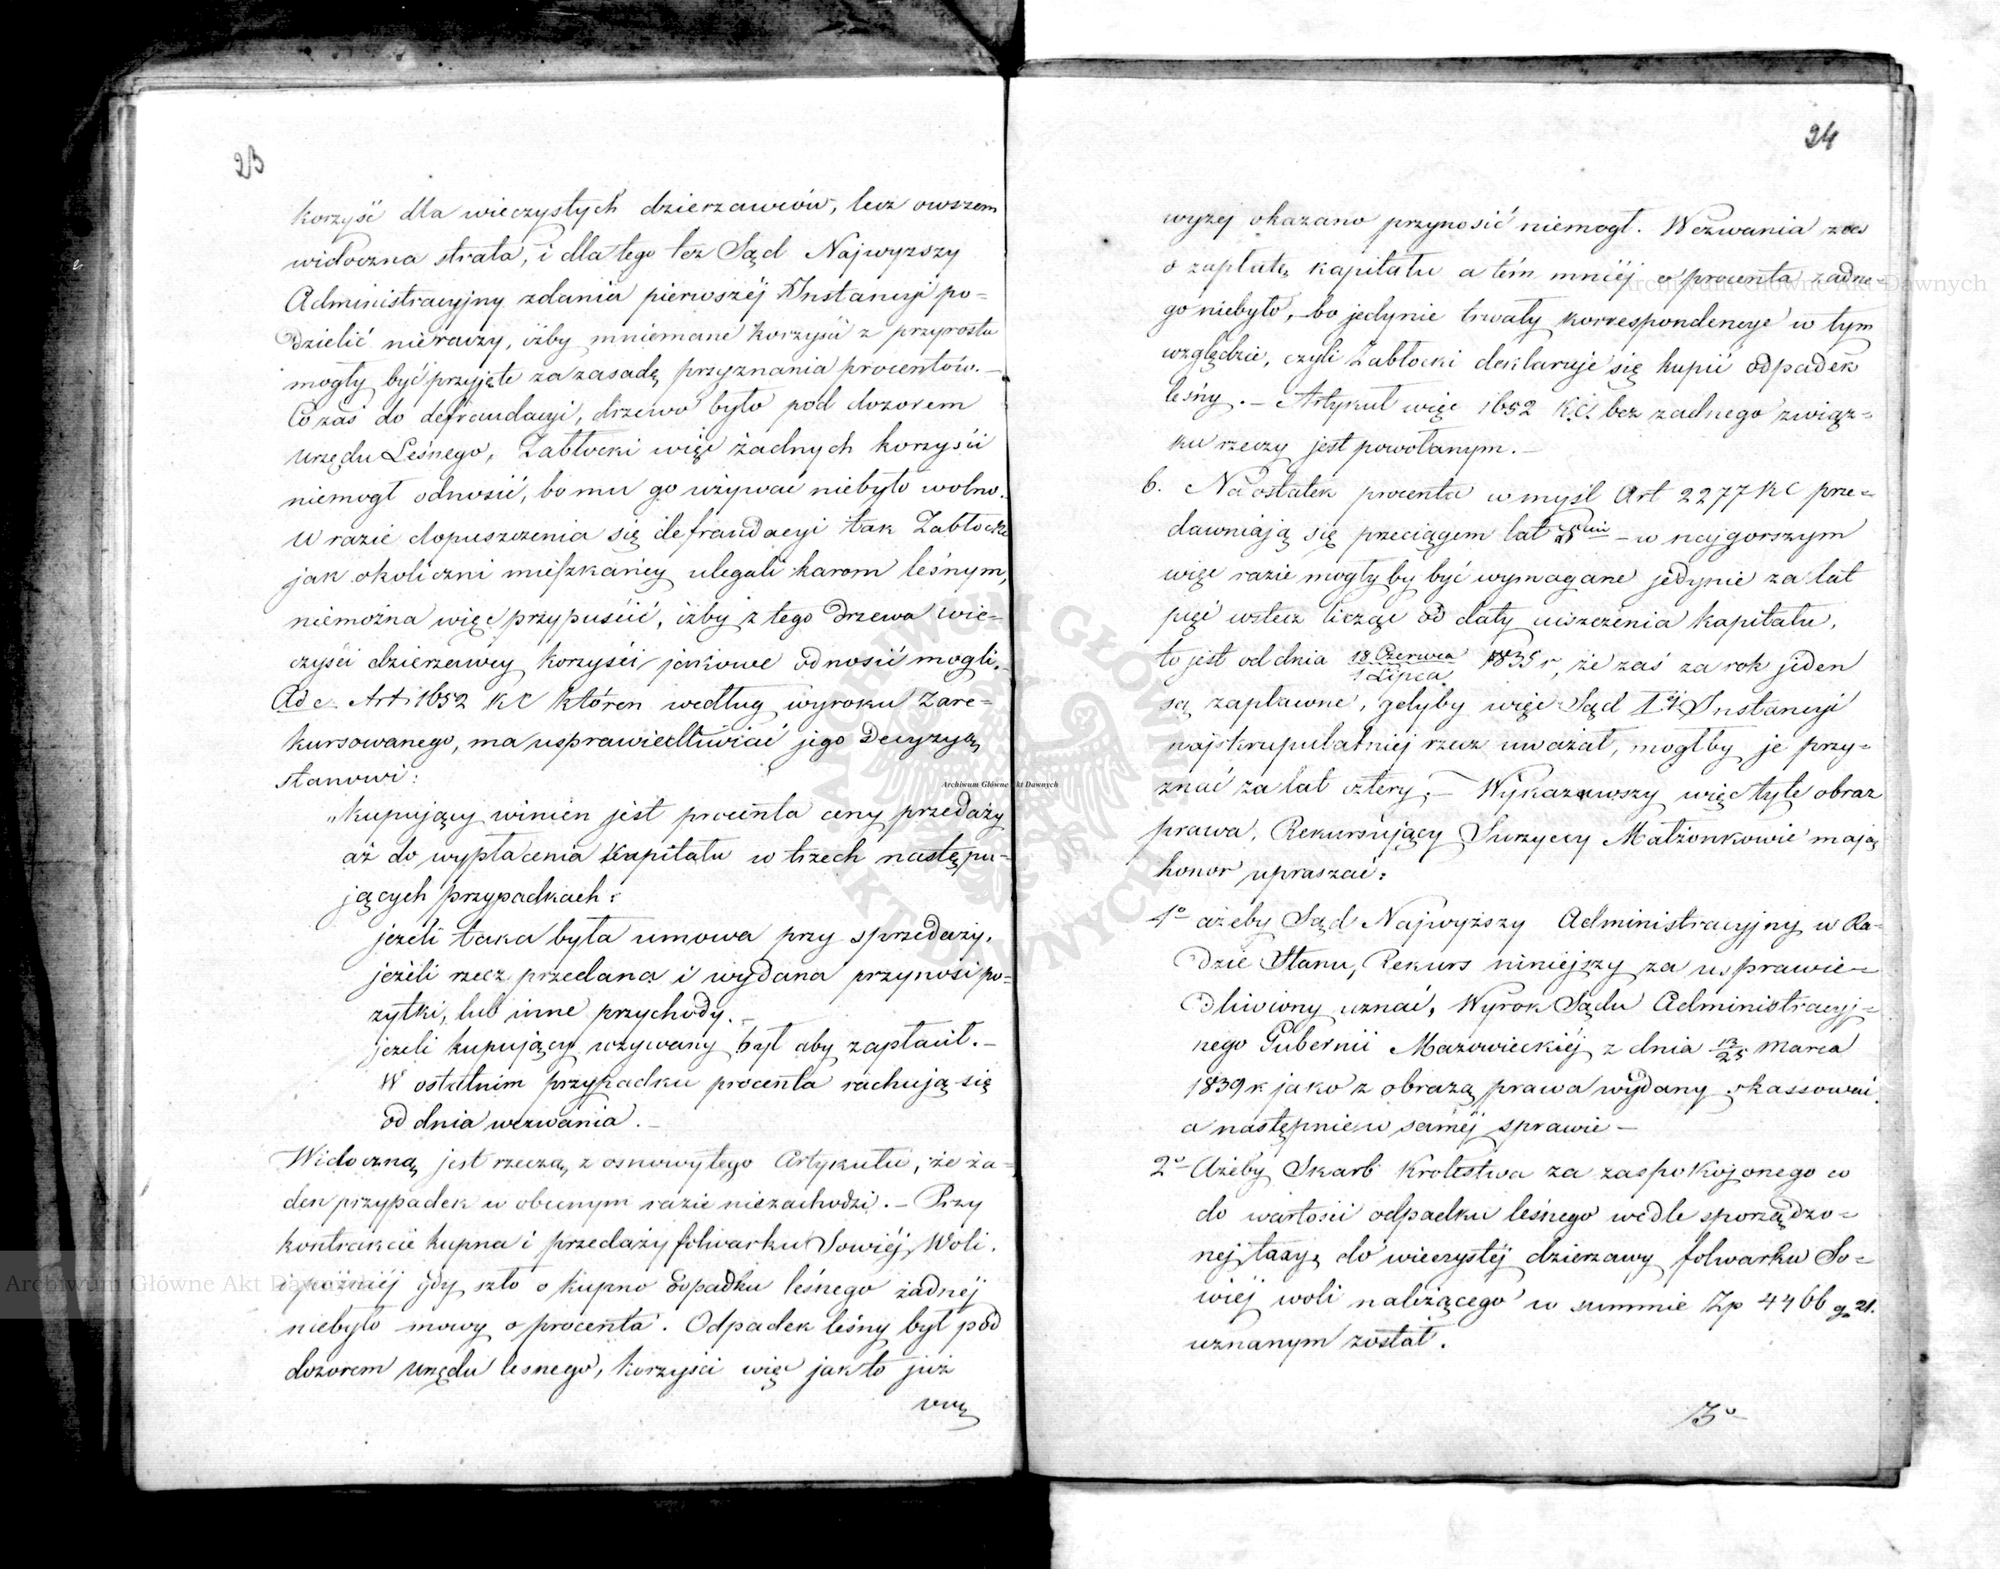 23
korzyść dla wieczystych dzierzawców, lecz owszem
widoczna strata, i dla tego też Sąd Najwyzszy
Administracyjny zdania pierwszéj Instancyi po=
dzielić nieraczy, iżby mniemane korzyści z przyrostu
mogły być przyjęte za zasadę przyznania procentów.—
Co zaś do defraudacyi, drzewo było pod dozorem
Urzędu Leśnego, Zabłocki więc żadnych korzyści
niemogł odnosić, bo mu go używać niebyło wolno.
W razie dopuszczenia się defraudacyi tak Zabłocki
jak okoliczni mieszkańcy ulegali karom leśnym,
niemożna więc przypuścić, iżby z tego drzewa wie=
czyści dzierzawcy korzyści jakowe odnosić mogli.
Ad c. Art. 1652 KC któren według wyroku zare=
kursowanego, ma usprawiedliwiać jego Decyzyą
stanowi:
„kupujący winien jest procenta ceny przedaży
aż do wypłacenia kapitału w trzech następu=
jących przypadkach:
jeżeli taka była umowa przy sprzedaży.
jeżeli rzecz przedana i wydana przynosi po=
żytki, lub inne przychody.—
jeżeli kupujący wzywany był aby zapłacił.—
W ostatnim przypadku procenta rachują się
od dnia wezwania.—
Widoczną jest rzeczą z osnowy tego Artykułu, że ża=
den przypadek w obecnym razie niezachodzi.— Przy
kontrakcie kupna i przedaży folwarku Sowiéj Woli.
i poźniéj gdy szło o kupno odpadku leśnego żadnéj
niebyło mowy o procenta. Odpadek leśny był pod
dozorem urzędu lesnego, korzyści więc jak to już
wyż
24
wyzej okazano przynosić niemogł. Wezwania zaś
o zapłatę kapitału a tém mniéj o procenta żadne=
go niebyło, bo jedynie trwały korrespondencye w tym
względzie, czyli Zabłocki deklaruje się kupić odpadek
leśny.— Artykuł więc 1652 K.C. bez zadnego związ=
ku rzeczy jest powołanym.—
6. Na ostatek procenta w myśl Art 2277 KC prze=
dawniają się przeciągem lat 5ciu — w najgorszym
więc razie mogłyby być wymagane jedynie za lat
pięć wstecz licząc od daty uiszczenia kapitału,
to jest od dnia 18 Czerwca / 1 Lipca 1835 r, że zaś za rok jeden
są zapławne, gdyby więc Sąd Iéj Instancyi
najskrupulatniéj rzecz uważał, mogłby je przy=
znać za lat cztery;— Wykazawszy więc tyle obraz
prawa, Rekursujący Surzyccy Małżonkowie mają
honor upraszać:
1o ażeby Sąd Najwyższy Administracyjny w Ra=
dzie Stanu, Rekurs niniejszy za usprawie=
dliwiony uznać, Wyrok Sądu Administracyj=
nego Gubernii Mazowieckiéj z dnia 13/25 Marca
1839 r jako z obrazą prawa wydany skassować
a następnie w saméj sprawie —
2o Ażeby Skarb Krolestwa za zaspokojonego co
do wartości odpadku leśnego wedle sporządzo=
nej taxy, do wieczystéj dzierzawy folwarku So=
wiéj woli należącego w summie Zp 4466 g. 21.
uznanym został.
3o
Archiwum Główne Akt Dawnych
Archiwum Główne Akt Dawnych
Archiwum Główne Akt Dawnych
ARCHIWUM GŁÓWNE AKT DAWNYCH